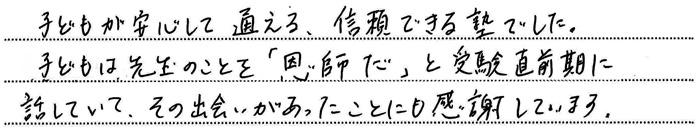 子どもが安心して通える、信頼できる塾でした。
子どもは先生のことを「恩師だ」と受験直前期に
話していて、その出会いがあったことにも感謝しています。